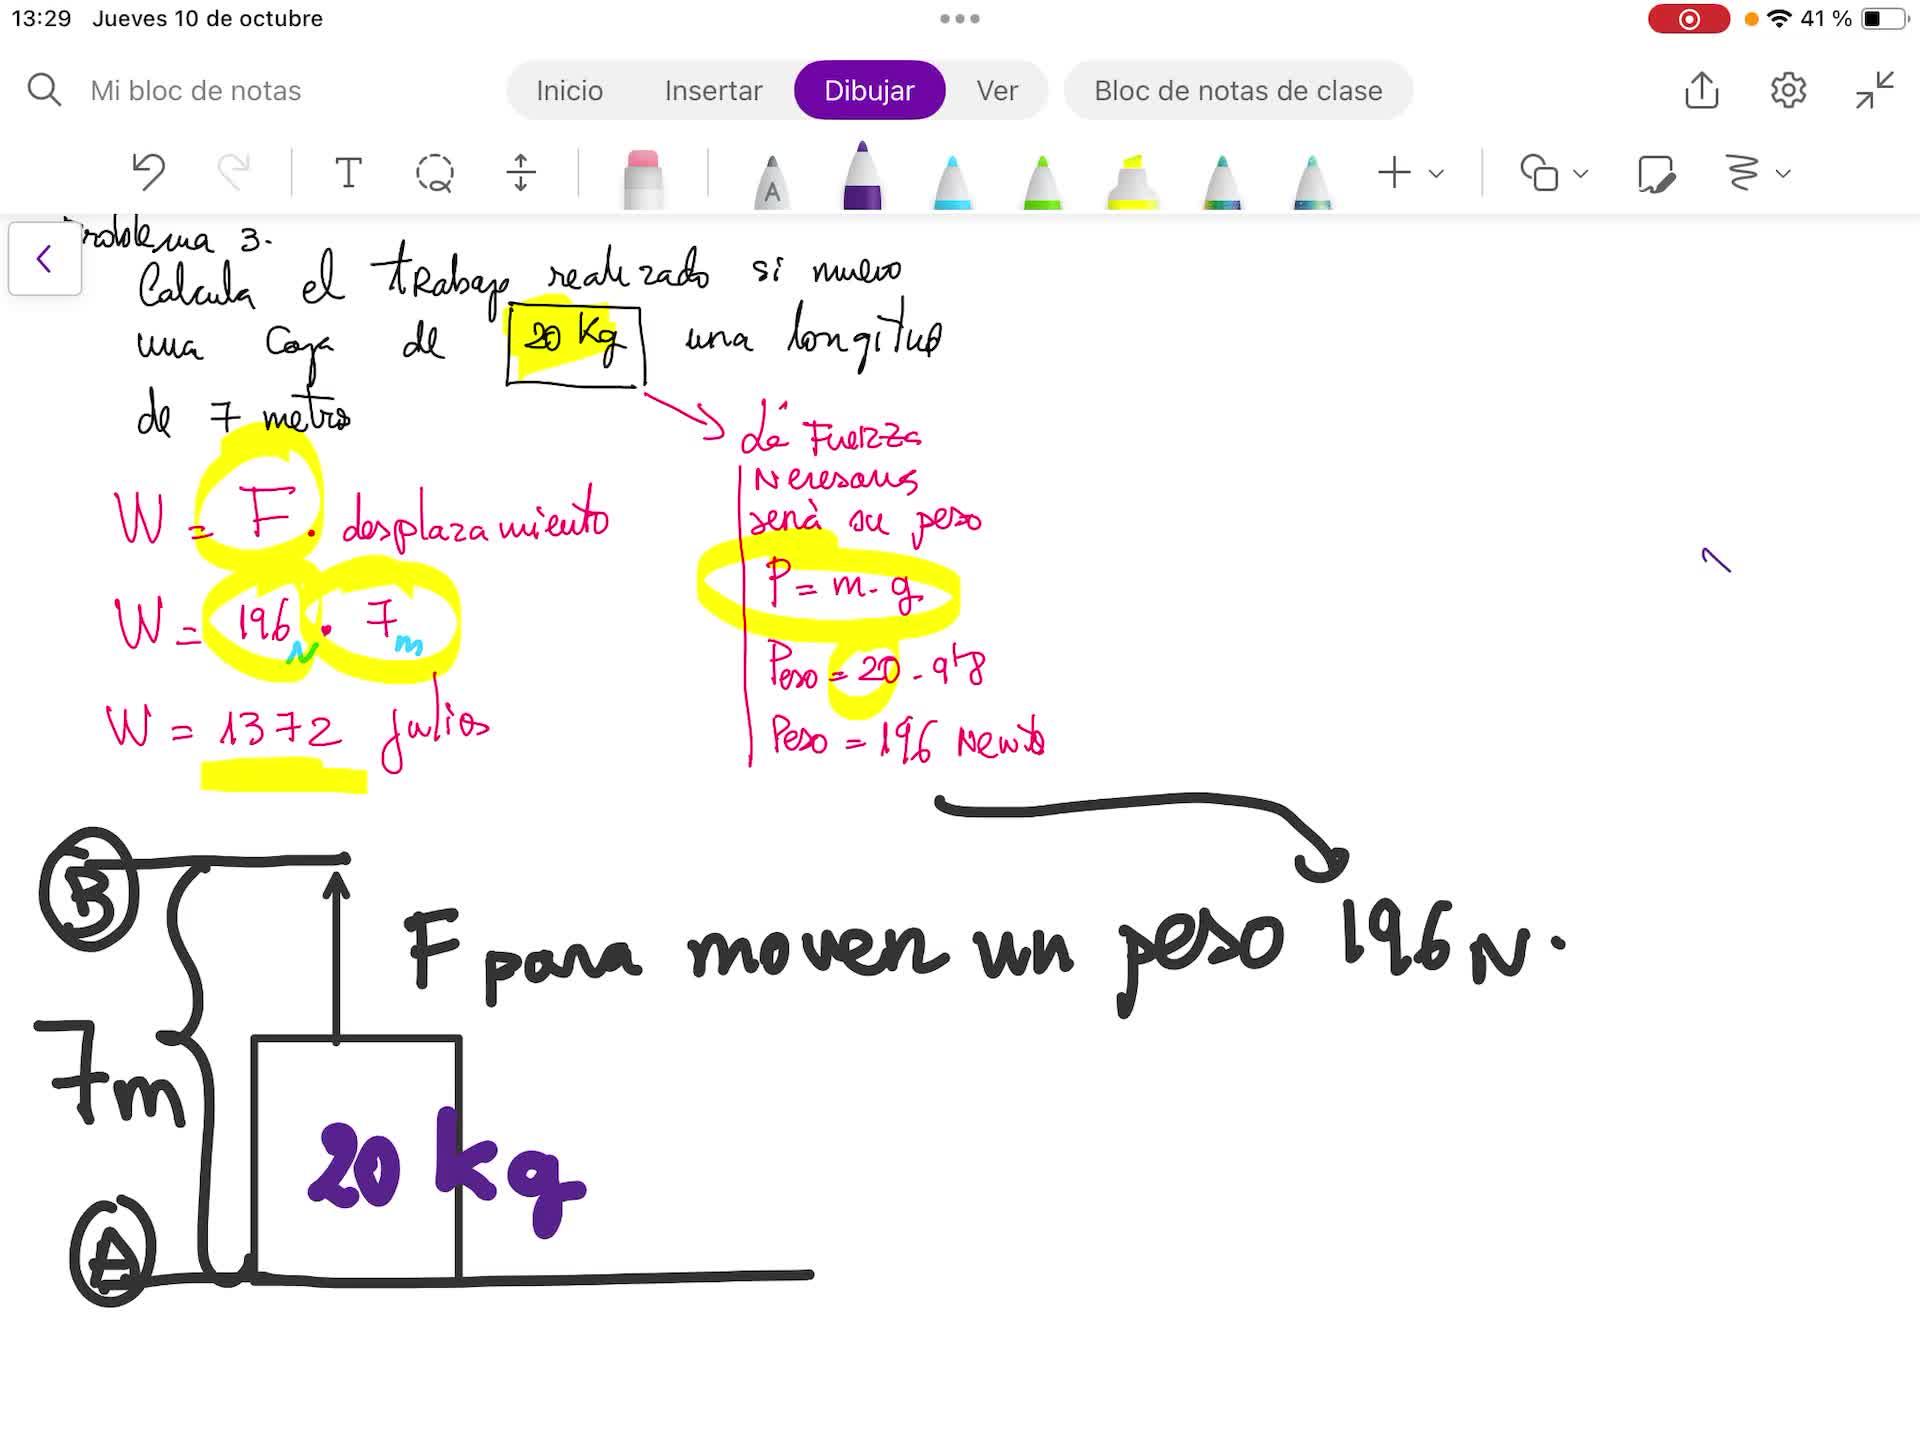 13:29 Jueves 10 de octubre
41 %
Mi bloc de notas
Inicio Insertar Dibujar Ver Bloc de notas de clase
T
A
Problema 3.
Calcula el trabajo realizado si muevo
una Caja de 20 Kg una longitud
de 7 metros
W = F . desplazamiento
W = 196 N . 7 m
W = 1372 julios
La Fuerza
Necesaria
será su peso
P = m . g
Peso = 20 . 9'8
Peso = 196 Newto
B
F para mover un peso 196 N.
7m
20 kg
A